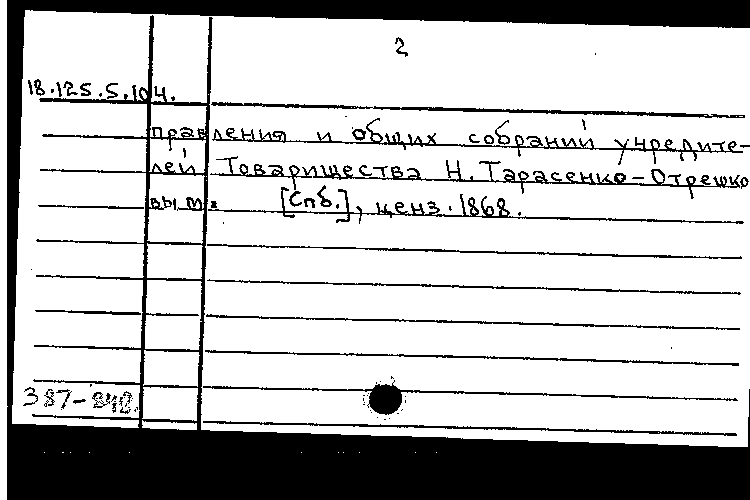 2
18.125.5.104.
правления и общих собраний учредите-
лей Товарищества Н. Тарасенко-Отрешко
вым. [Спб.], ценз. 1868.
387-842.